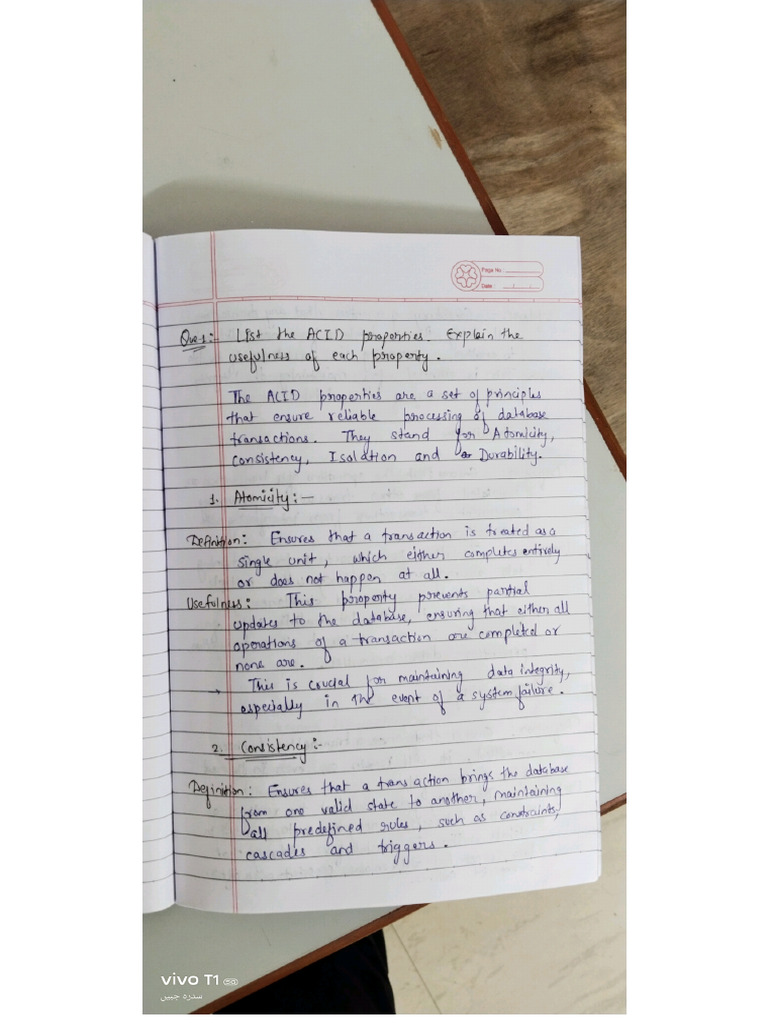 Page No :
Date : / /
Que-1:- List the ACID properties. Explain the
usefulness of each property.
The ACID properties are a set of principles
that ensure reliable processing of database
transactions. They stand for Atomicity,
Consistency, Isolation and Durability.
1. Atomicity:-
Definition: Ensures that a transaction is treated as a
single unit, which either completes entirely
or does not happen at all.
Usefulness: This property prevents partial
updates to the database, ensuring that either all
operations of a transaction are completed or
none are.
→ This is crucial for maintaining data integrity,
especially in the event of a system failure.
2. Consistency:-
Definition: Ensures that a transaction brings the database
from one valid state to another, maintaining
all predefined rules, such as constraints,
cascades and triggers.
vivo T1 5G
سدرہ جبیں